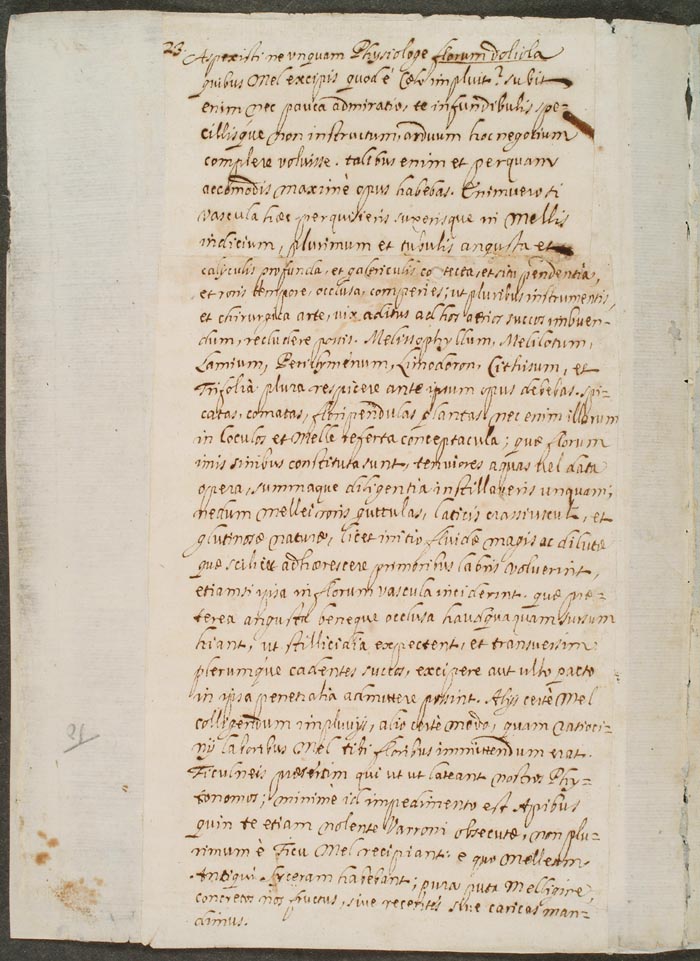 23. Aspexisti ne unquam Physiologe florum doliola
quibus Mel excipis quod è Cælo impluit? subit
enim nec pauca admiratio, te infundibulis spe=
cillisque non instructum, arduum hoc negotium
complere voluisse. talibus enim et perquam
accomodis maximè opus habebas. Enimvero si
vascula hæc perquisieris suxerisque in Mellis
indicium, plurimum et tubulis angusta et
calyculis profunda, et galericulis co tecta, et situ pendentia,
et roris tempore, occlusa, comperies; ut pluribus instrumentis,
et chirurgica arte, vix aditus ad hos succos imbuen=
dum, recludere possis. Melissophyllum, Melilotum,
Lamium, Periclymenum, Limodoron, Cithisum, et
Trifolia plura respicere ante ipsum opus debebas. spi=
catas, comatas, floripendulas plantas, nec enim illarum
in loculos et Melle referta conceptacula; quæ florum
imis sinibus constituta sunt, tenuiores aquas vel data
opera, summaque diligentia instillaveris unquam;
nedum mellei roris guttulas, laticis crassiuscul, et
glutinosæ naturæ, licet initio fluidæ magis ac dilutæ
quæ scilicet adhærescere primoribus labris voluerint,
etiamsi ipsa in florum vascula inciderint. quæ præ=
terea angusta beneque occlusa hausquaquam sursum
hiant, ut stillicidia expectent, et transversim
plerumque cadentes succos, excipere aut ullo pacto
in ipsa penetralia admittere possint. Alijs certè Mel
colligendum impluvijs, alio certè modo, quam ratioci=
nij laboribus Mel tibi floribus immittendum erat.
Ficulneis præsertim qui ut ut lateant nostros Phy=
tonomos; minimè id impedimento est Apibus
quin te etiam nolente Varroni obsecutæ, non plu=
rimum è Ficu Mel recipiant. e quo Melleam
Antiqui Syceram habebant; pura puta Melligine
concretos nos fructus, sive recentes sive caricas man=
dimus.
21